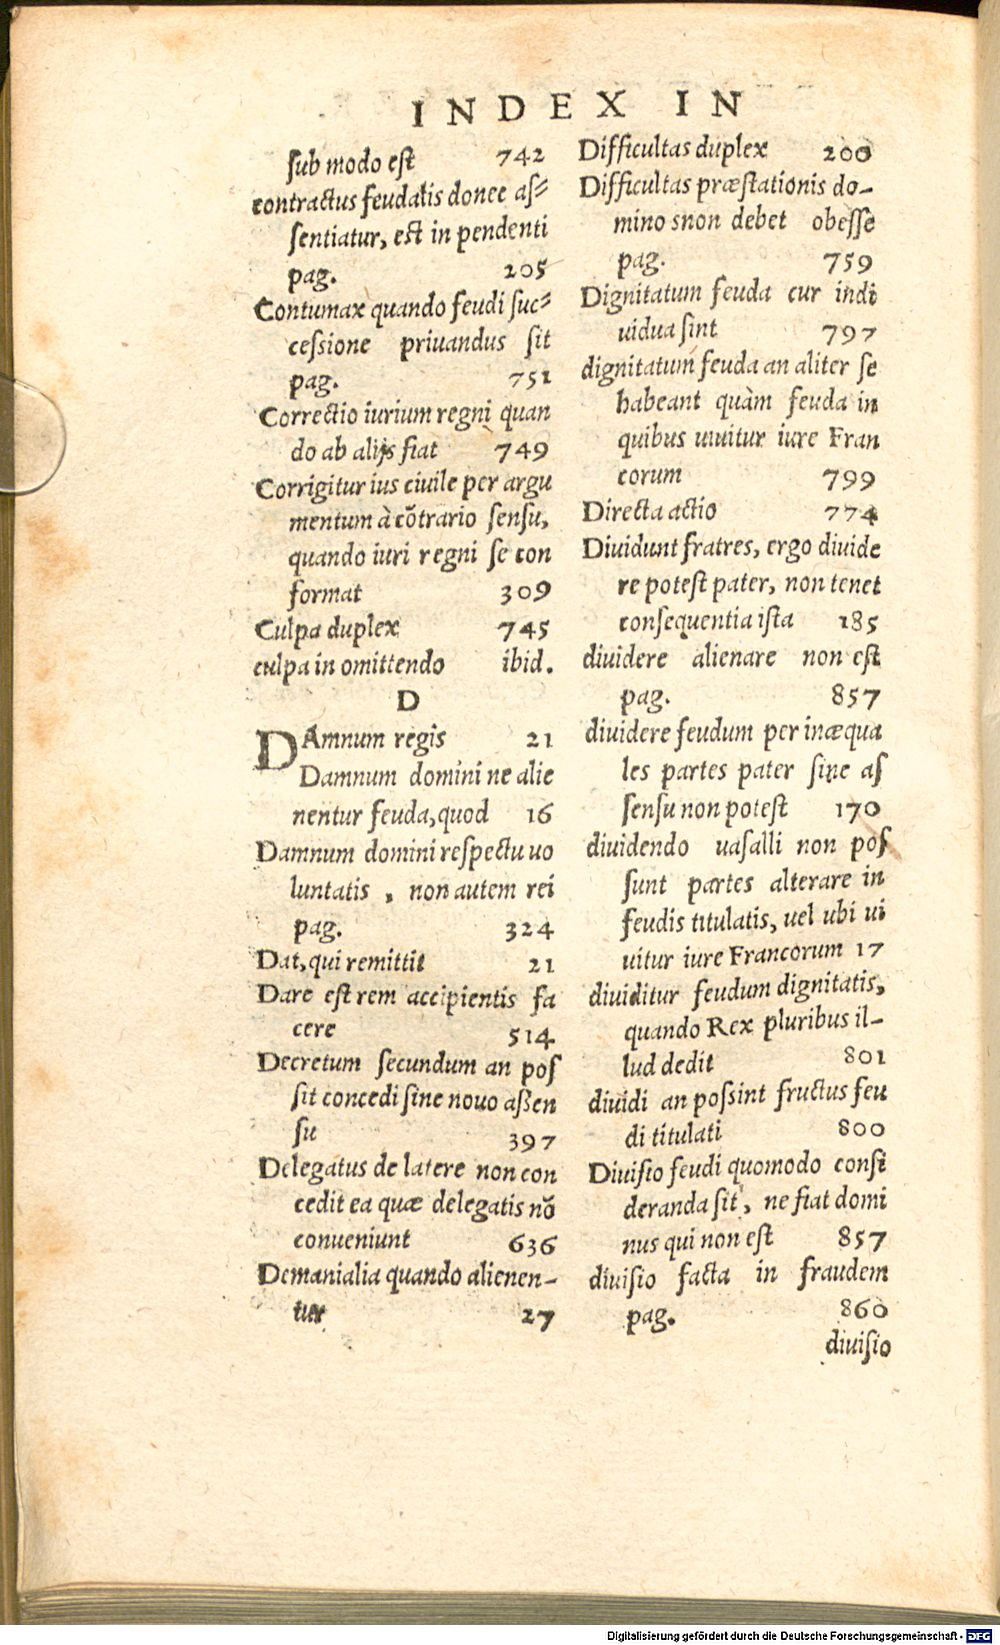 INDEX IN
sub modo est 742
contractus feudalis donec as=
sentiatur, est in pendenti
pag. 205
Contumax quando feudi suc=
cessione priuandus sit
pag. 751
Correctio iurium regni quan
do ab alijs fiat 749
Corrigitur ius ciuile per argu
mentum à cōtrario sensu,
quando iuri regni se con
format 309
Culpa duplex 745
culpa in omittendo ibid.
D
DAmnum regis 21
Damnum domini ne alie
nentur feuda, quod 16
Damnum domini respectu uo
luntatis, non autem rei
pag. 324
Dat, qui remittit 21
Dare est rem accipientis fa
cere 514
Decretum secundum an pos
sit concedi sine nouo assen
su 397
Delegatus de latere non con
cedit ea quæ delegatis nō
conueniunt 636
Demanialia quando alienen-
tur 27
Difficultas duplex 200
Difficultas præstationis do-
mino snon debet obesse
pag. 759
Dignitatum feuda cur indi
uidua sint 797
dignitatum feuda an aliter se
habeant quàm feuda in
quibus uiuitur iure Fran
corum 799
Directa actio 774
Diuidunt fratres, ergo diuide
re potest pater, non tenet
consequentia ista 185
diuidere alienare non est
pag. 857
diuidere feudum per inæqua
les partes pater sine as
sensu non potest 170
diuidendo uasalli non pos
sunt partes alterare in
feudis titulatis, uel ubi ui
uitur iure Francorum 17
diuiditur feudum dignitatis,
quando Rex pluribus il-
lud dedit 801
diuidi an possint fructus feu
di titulati 800
Diuisio feudi quomodo consi
deranda sit, ne fiat domi
nus qui non est 857
diuisio facta in fraudem
pag. 860
diuisio
Digitalisierung gefördert durch die Deutsche Forschungsgemeinschaft - DFG